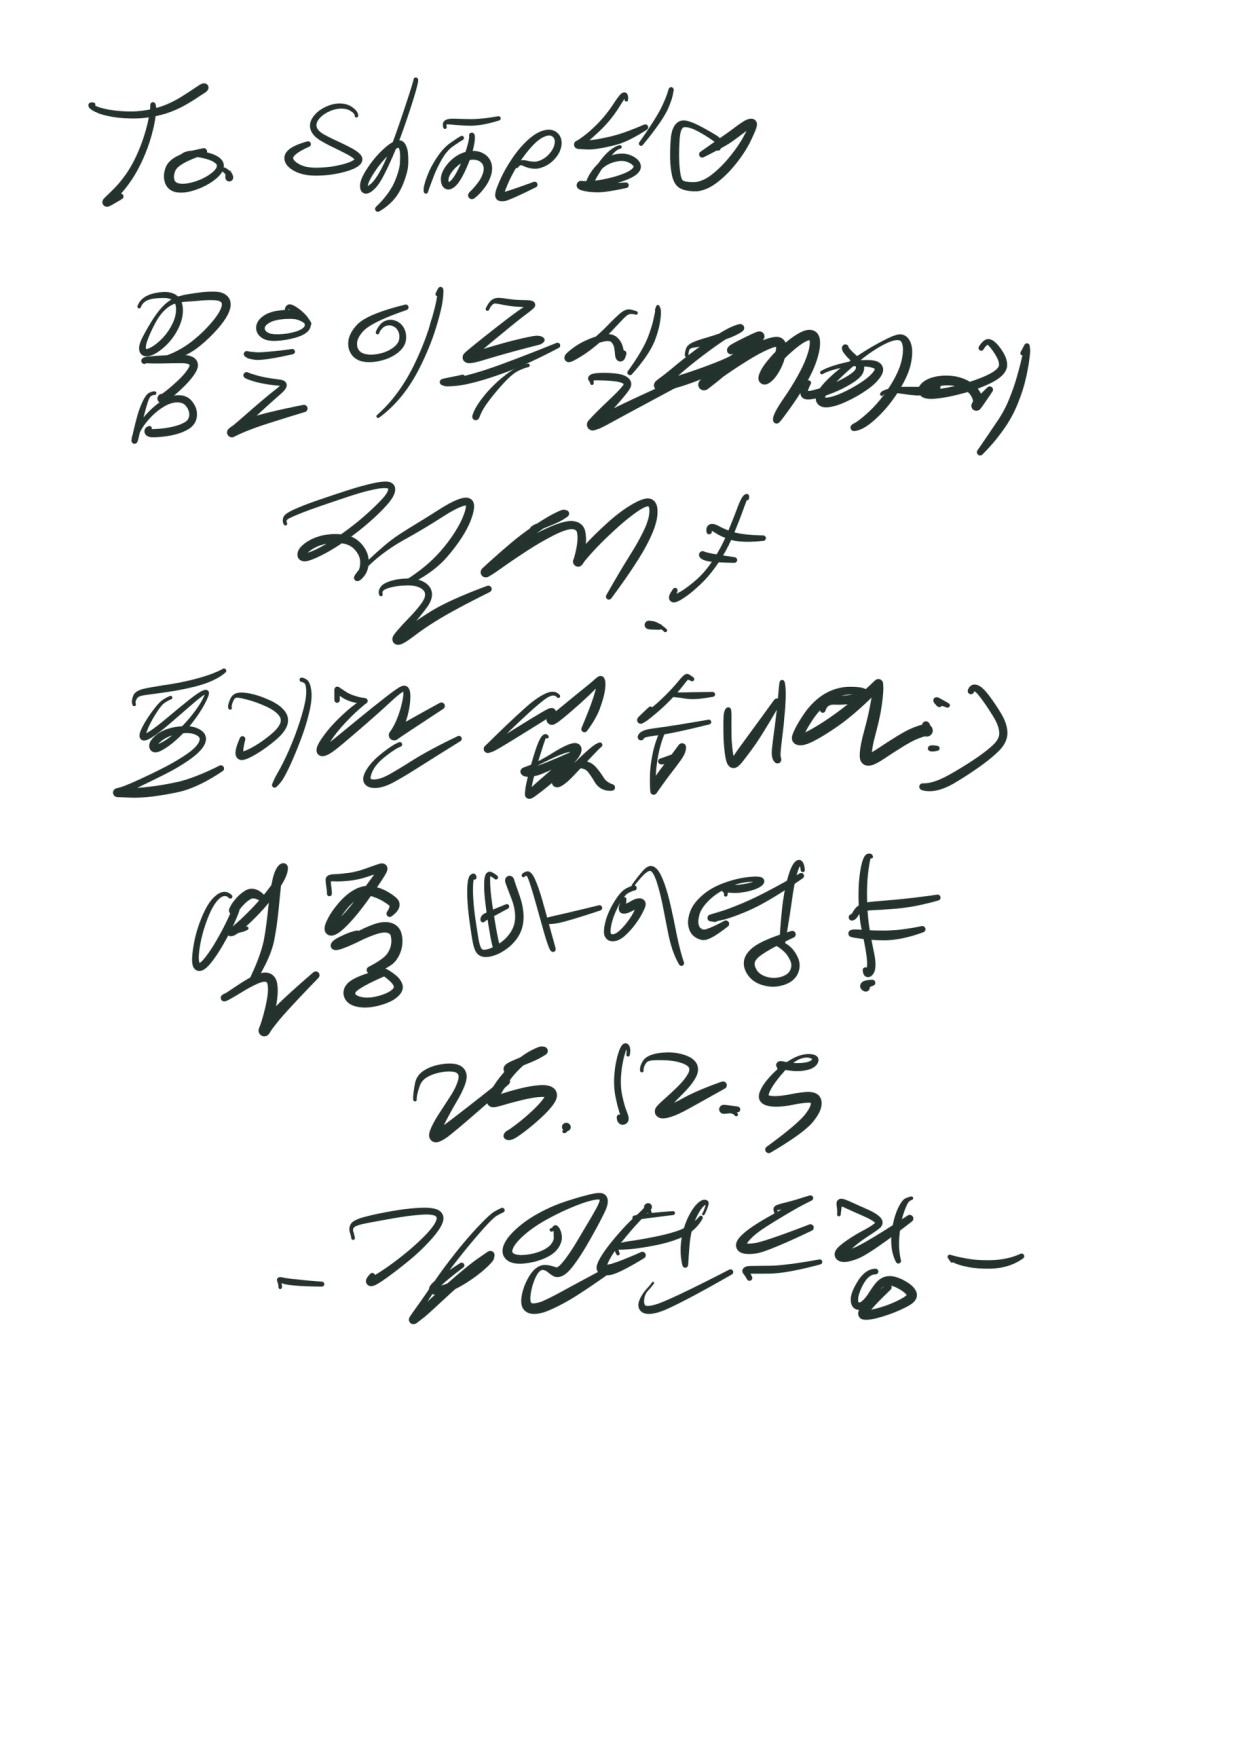 To. Shine님♡
꿈을 이루실 때까지
절대!
포기란 없습니다:)
열중 빠이팅!
25.12.5
-김인턴 드림-